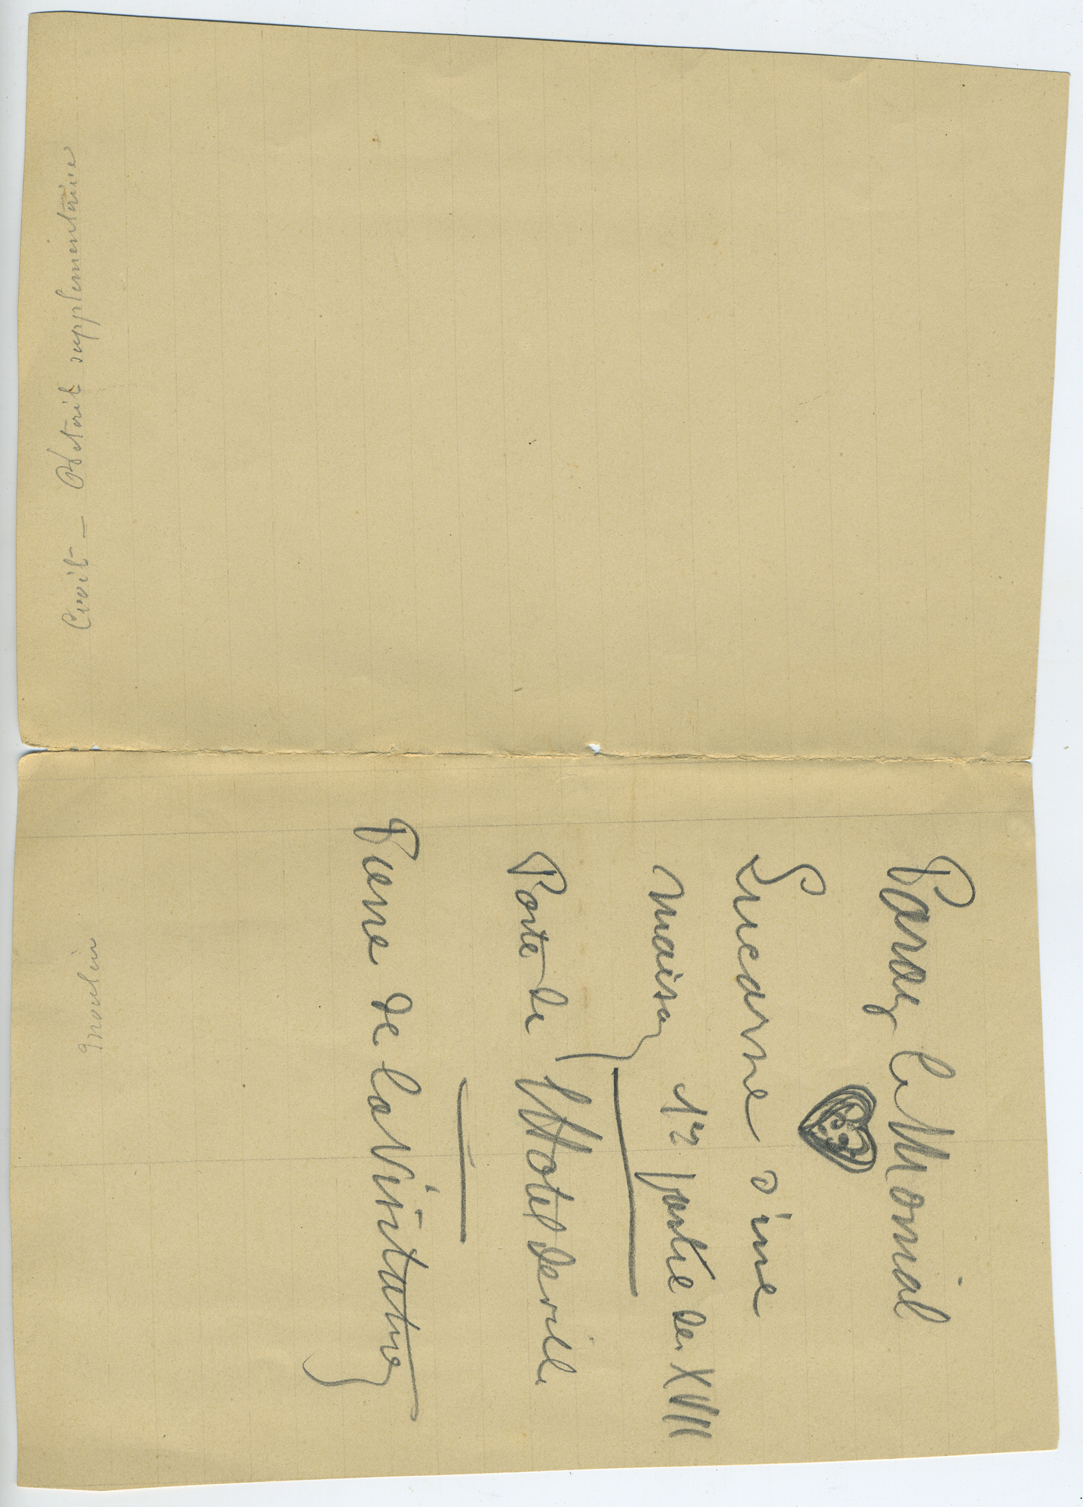 Paray le Monial
Lucarne d'une
maison 1re partie du XVII
Porte de l'Hotel de ville
Pierre de la Visitation
moulin
Croit — Détail supplémentaire